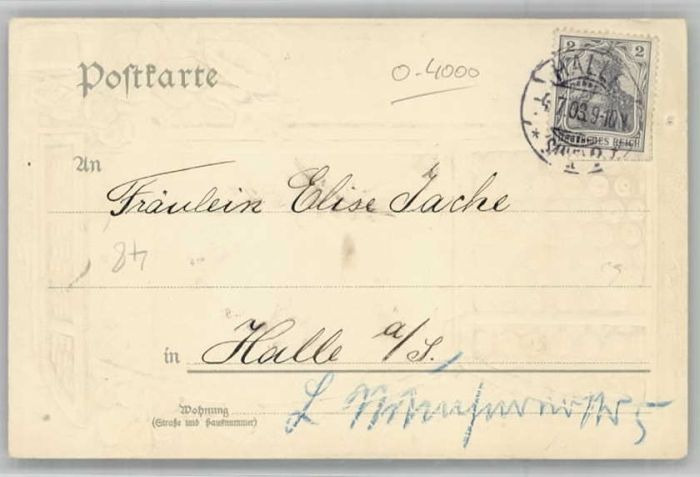 Postkarte
0-4000
2 2
HALLE
-4.7.03. 9-10 V.
DEUTSCHES REICH
An
Fräulein Elise Jache
48
in Halle a/S.
Wohnung
(Straße und Hausnummer)
5